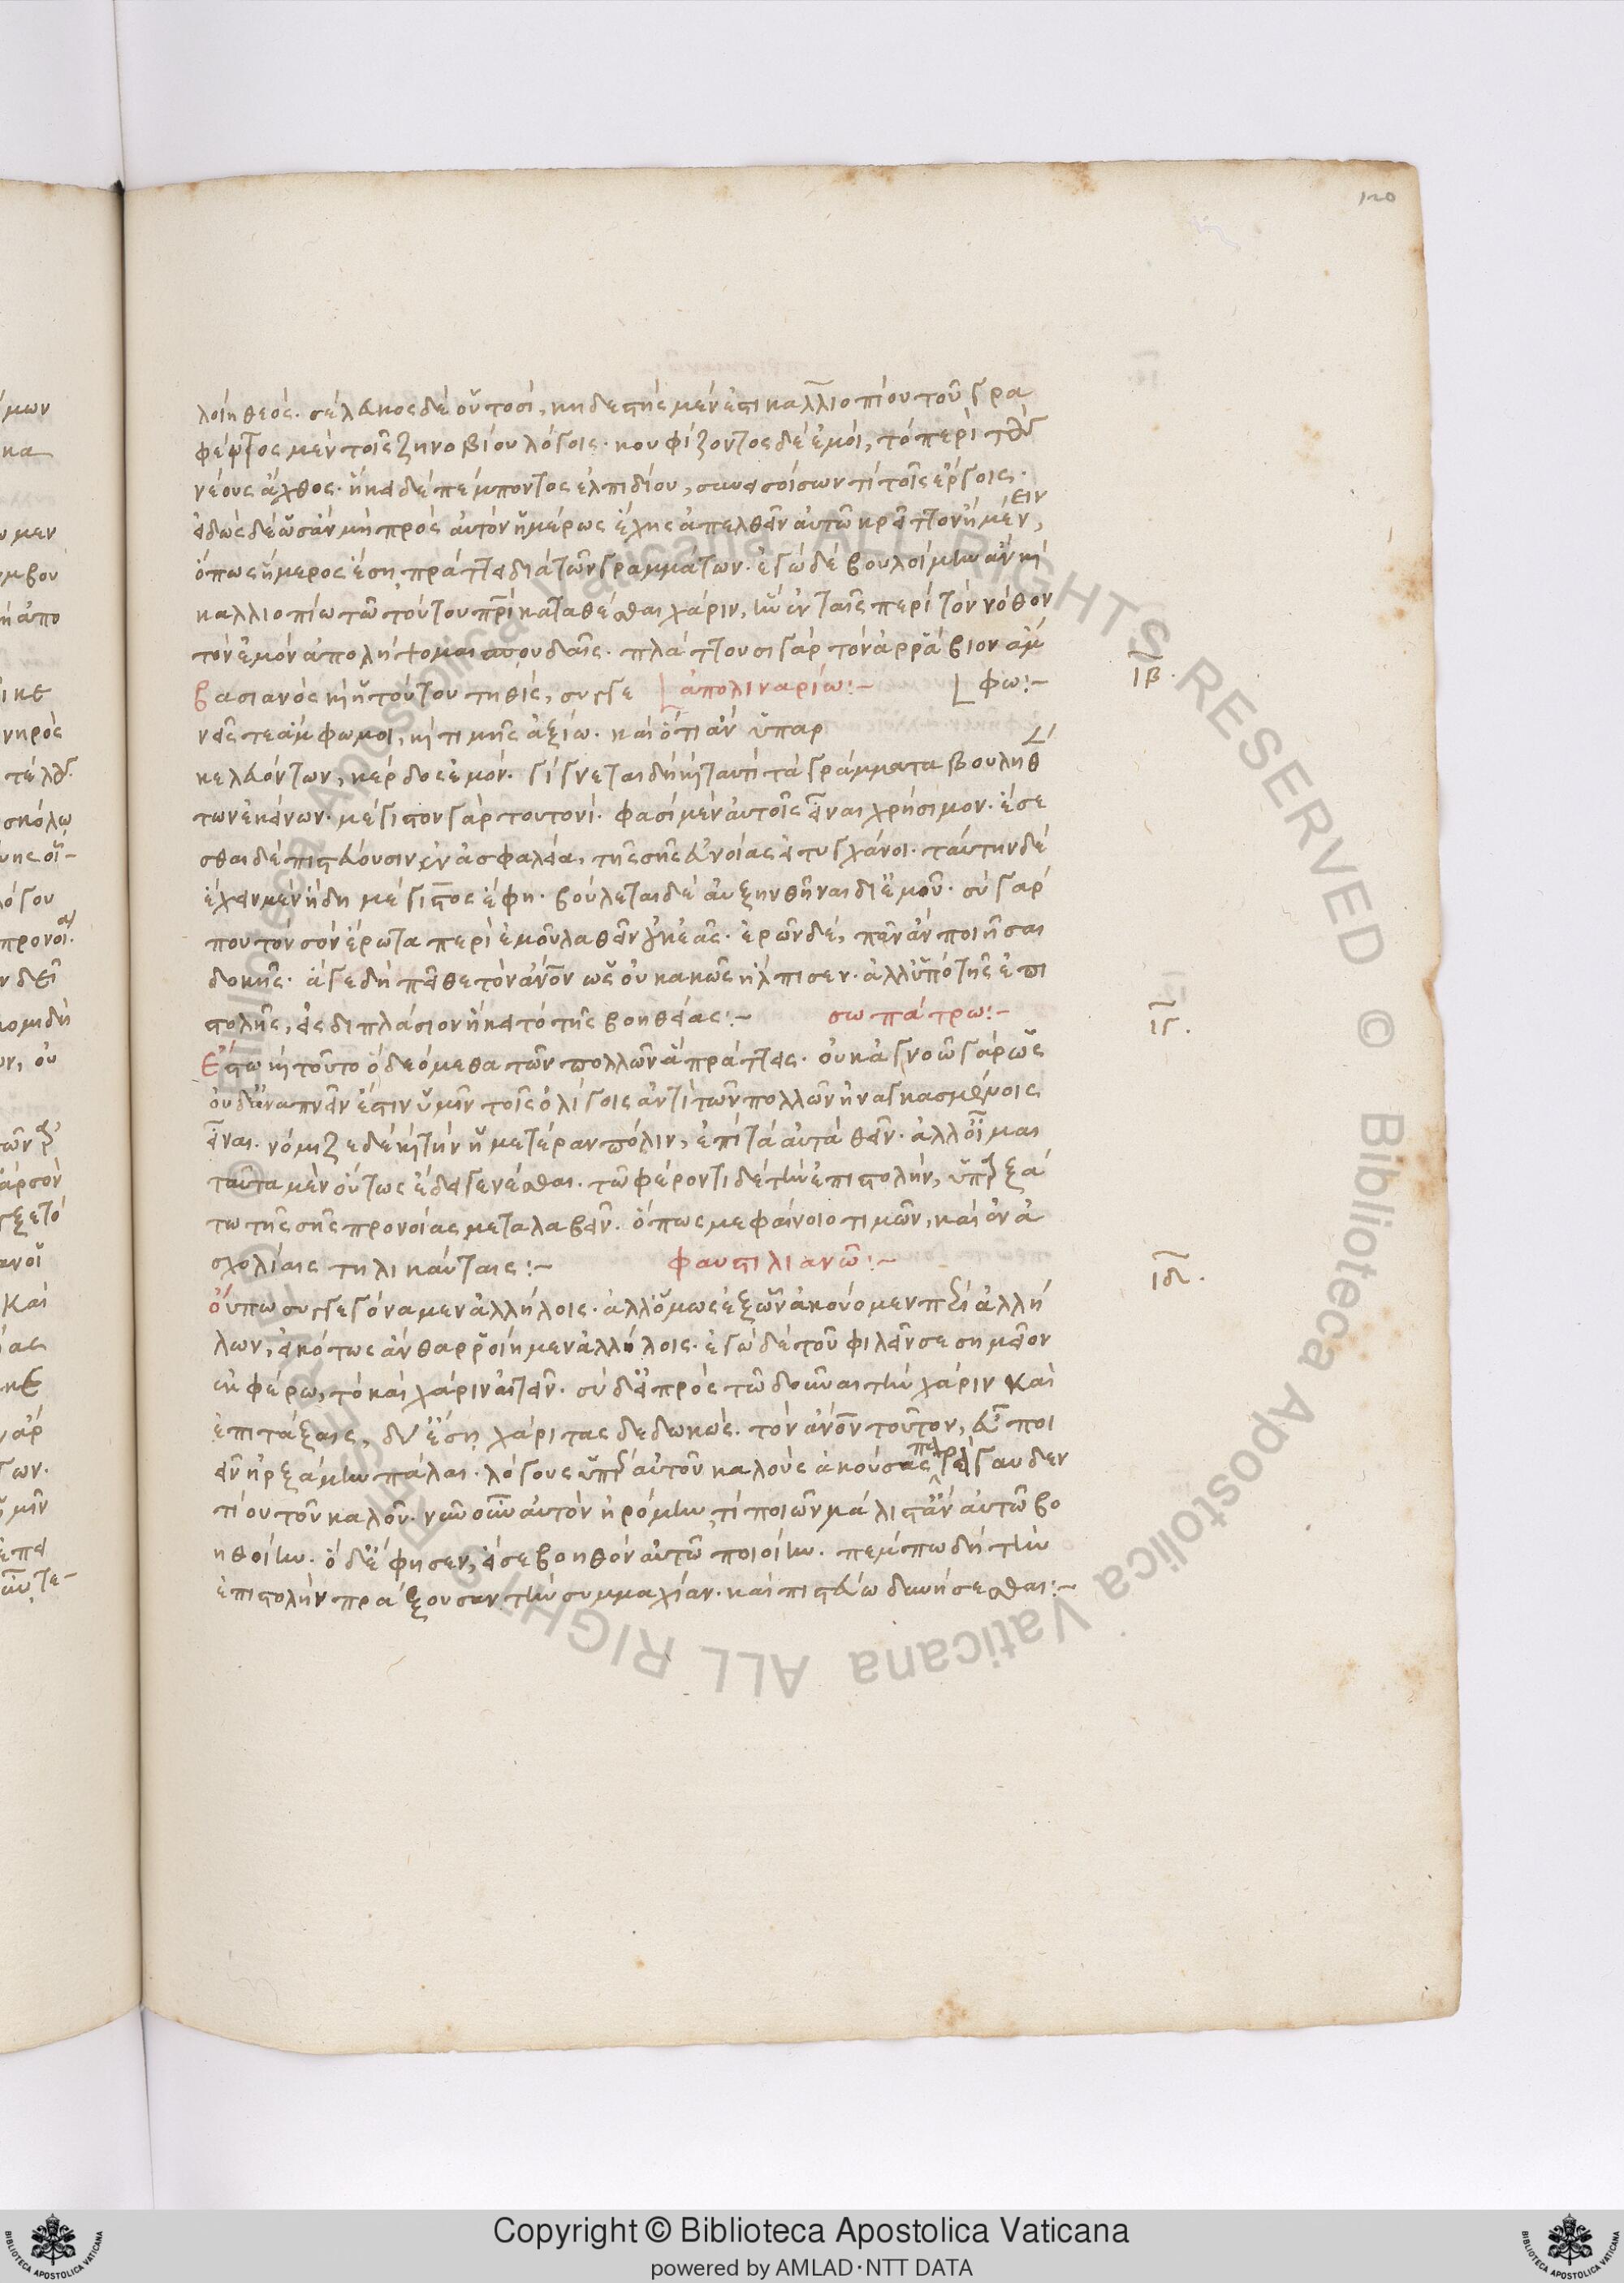 120
λοίη θεός. σέλευκος δὲ οὑτοσὶ, κηδεστὴς μέν ἐστι καλλιοπίου τοῦ γρα
φέντος μὲν τοῖς ζηνοβίου λόγοις. κουφίζοντος δὲ ἐμοὶ, τὸ περὶ τοὺς
νέους ἄχθος. ἥκει δὲ πέμποντος ἐλπιδίου, συνεσοίσων τί τοῖς ἔργοις.
εἰδὼς δὲ ὡς ἂν μὴ πρὸς αὐτὸν ἡμέρως ἔχης ἀπελθεῖν αὐτῶ κρεῖττον ἢ μένειν,
ὅπως ἥμερος ἔση πράττει διὰ τῶν γραμμάτων. ἐγὼ δὲ βουλοίμην ἂν καὶ
καλλιοπίω τῶ τούτου πατρὶ καταθέσθαι χάριν, ἣν ἐν ταῖς περὶ τὸν νόθον
τὸν ἐμὸν ἀπολήψομαι σπουδαῖς. πλάττουσι γὰρ τὸν ἀρράβιον ἄμ
φω:- ιβ.
ἀπολιναρίω:-
βασιανὸς καὶ ἡ τούτου τηθὶς, συγγε
νεῖς τε ἄμφω μοι, καὶ τιμῆς ἀξίω. καὶ ὅτι ἂν ὑπάρ
κελευόντων, κέρδος ἐμόν. γίγνεται δὴ καὶ ταυτὶ τὰ γράμματα βουληθέν
των ἐκείνων. μέγιστον γὰρ τουτονὶ. φασὶ μὲν αὐτοῖς εἶναι χρήσιμον. ἔσε
σθαι δὲ πιστεύουσιν ἐν ἀσφαλεία, τῆς σῆς εὐνοίας εἰ τυγχάνοι. ταύτην δὲ
ἔχειν μὲν ἤδη μέγιστος ἔφη. βούλεται δὲ αὐξηνθῆναι δι' ἐμοῦ. σὺ γάρ
που τὸν σὸν ἔρωτα περὶ ἐμοῦ λαθεῖν οὐκ ἐᾶς. ἐρῶν δὲ, πᾶν ἂν ποιῆσαι
δοκῆς. ἄγε δὴ πεῖθε τὸν ἄνθρωπον ὡς οὐ κακῶς ἤλπισεν. ἀλλ' ὑπὸ τῆς ἐπι
στολῆς, εἰς διπλάσιον ἥκει τὸ τῆς βοηθείας:- σωπάτρω:- ιγ.
Ἔστω καὶ τοῦτο ὃ δεόμεθα τῶν πολλῶν ἃ πράττεις. οὐκ ἀγνοῶ γὰρ ὡς
οὐδ' ἀναπνεῖν ἔστιν ὑμῖν τοῖς ὀλίγοις ἀντὶ τῶν πολλῶν ἠναγκασμένοις
εἶναι. νόμιζε δὲ καὶ τὴν ἡμετέραν πόλιν, ἐπὶ τὰ αὐτὰ θεῖν. ἀλλ' οἶμαι
ταῦτα μὲν οὕτως ἔδει γενέσθαι. τῶ φέροντι δὲ τὴν ἐπιστολὴν, ὑπαρξά
τω τῆς σῆς προνοίας μεταλαβεῖν. ὅπως με φαίνοιο τιμῶν, καὶ ἐν ἀ
σχολίαις τηλικαύταις:- φαυστιλιανῶ:- ιδ.
Οὔπω συγγεγόναμεν ἀλλήλοις. ἀλλ' ὅμως ἐξ ὧν ἀκούομεν περὶ ἀλλή
λων, εἰκότως ἂν θαρροίημεν ἀλλήλοις. ἐγὼ δὲ τοῦ φιλεῖν σε σημεῖον
ἐκφέρω, τὸ καὶ χάριν αἰτεῖν. σὺ δ' εἰ πρὸς τῶ δοῦναι τὴν χάριν καὶ
ἐπιτάξαις, δύ' ἔση χάριτας δεδωκώς. τὸν ἄνθρωπον τοῦτον, εὖ ποι
εῖν ἠρξάμην πάλαι. λόγους ὑπὲρ αὐτοῦ καλοὺς ἀκούσας περὶ γαυδεν
τίου τοῦ καλοῦ. νῦν οὖν αὐτὸν ἠρόμην, τί ποιῶν μάλιστ' ἂν αὐτῶ βο
ηθοίην. ὁ δ' ἔφησεν, εἰ σε βοηθὸν αὐτῶ ποιοίην. πέμπω δὴ τὴν
ἐπιστολὴν πράξουσαν τὴν συμμαχίαν. καὶ πιστεύω δυνήσεσθαι:-
Copyright © Biblioteca Apostolica Vaticana
powered by AMLAD·NTT DATA